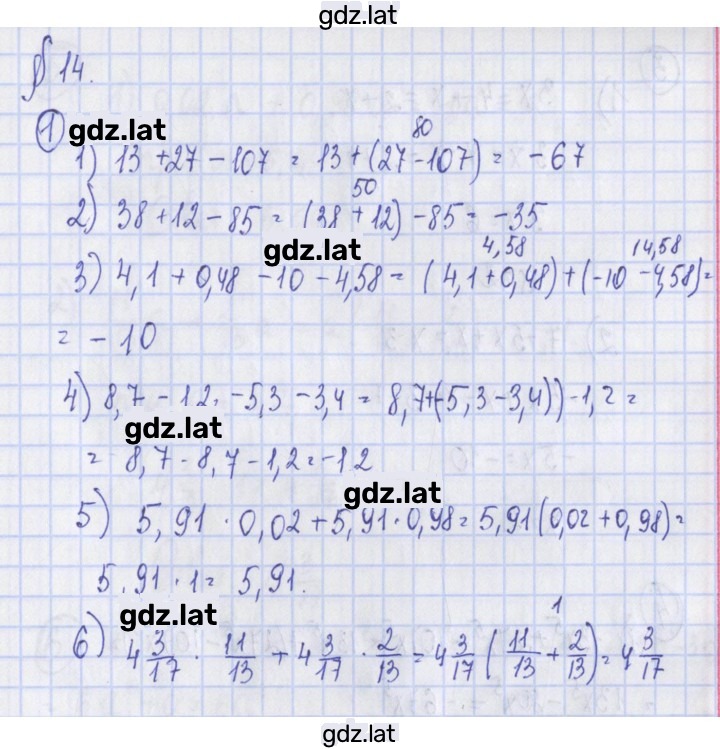 gdz.lat
§ 14.
① gdz.lat
80
1) 13 + 27 - 107 = 13 + (27 - 107) = - 67
50
2) 38 + 12 - 85 = (38 + 12) - 85 = - 35
gdz.lat
4,58 14,58
3) 4,1 + 0,48 - 10 - 4,58 = (4,1 + 0,48) + (-10 - 4,58) =
= - 10
4) 8,7 - 1,2 - 5,3 - 3,4 = 8,7 + (-5,3 - 3,4)) - 1,2 =
gdz.lat
= 8,7 - 8,7 - 1,2 = -1,2
gdz.lat
5) 5,91 · 0,02 + 5,91 · 0,98 = 5,91 (0,02 + 0,98) =
5,91 · 1 = 5,91.
gdz.lat
1
6) 4 3/17 · 11/13 + 4 3/17 · 2/13 = 4 3/17 (11/13 + 2/13) = 4 3/17
gdz.lat